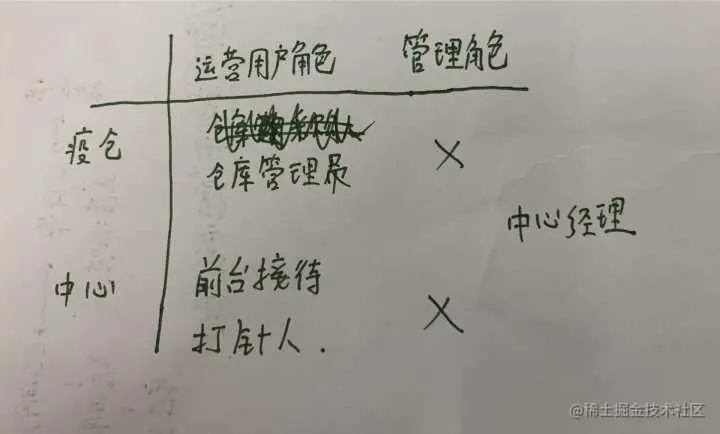 运营用户角色 管理角色
疫仓 ×
仓库管理员
中心经理
中心 前台接待
打针人. ×
@稀土掘金技术社区